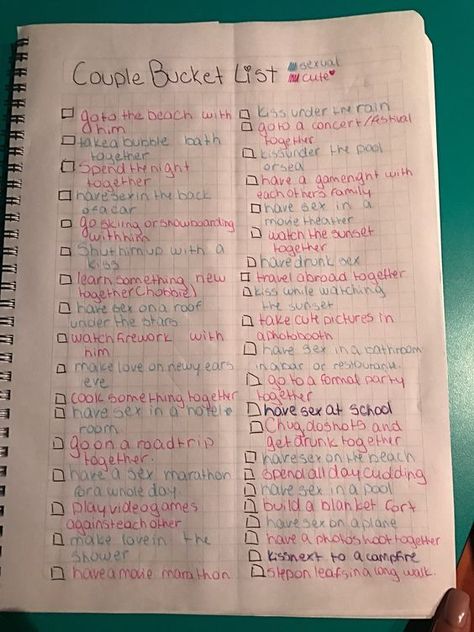 Couple Bucket List
sexual
cute
go to the beach with
him
take a bubble bath
together
Spend the night
together
have sex in the back
of a car
go skiing or snowboarding
with him
Shut him up with a
kiss
learn something new
together (hobbie)
have sex on a roof
under the stars
watch firework with
him
make love on new years
eve
cook something together
have sex in a hotel
room
go on a roadtrip
together.
have a sex marathon
for a whole day
play videogames
against each other
make love in the
shower
have a movie marathon
kiss under the rain
go to a concert/fastival
together
kiss under the pool
or sea
have a gamenght with
each others family
have sex in a
movie theatter
watch the sunset
together
have drunk sex
travel abroad together
kiss while watching
the sunset
take cute pictures in
a photobooth
have sex in a bathroom
in a bar or
go to a formal party
together
have sex at school
Chug, do shots and
get drunk together
have sex on the beach
spend all day cudding
have sex in a pool
build a blanket fort
have sex on a plane
have a photoshoot together
kiss next to a campfire
step on leafs in a long walk.